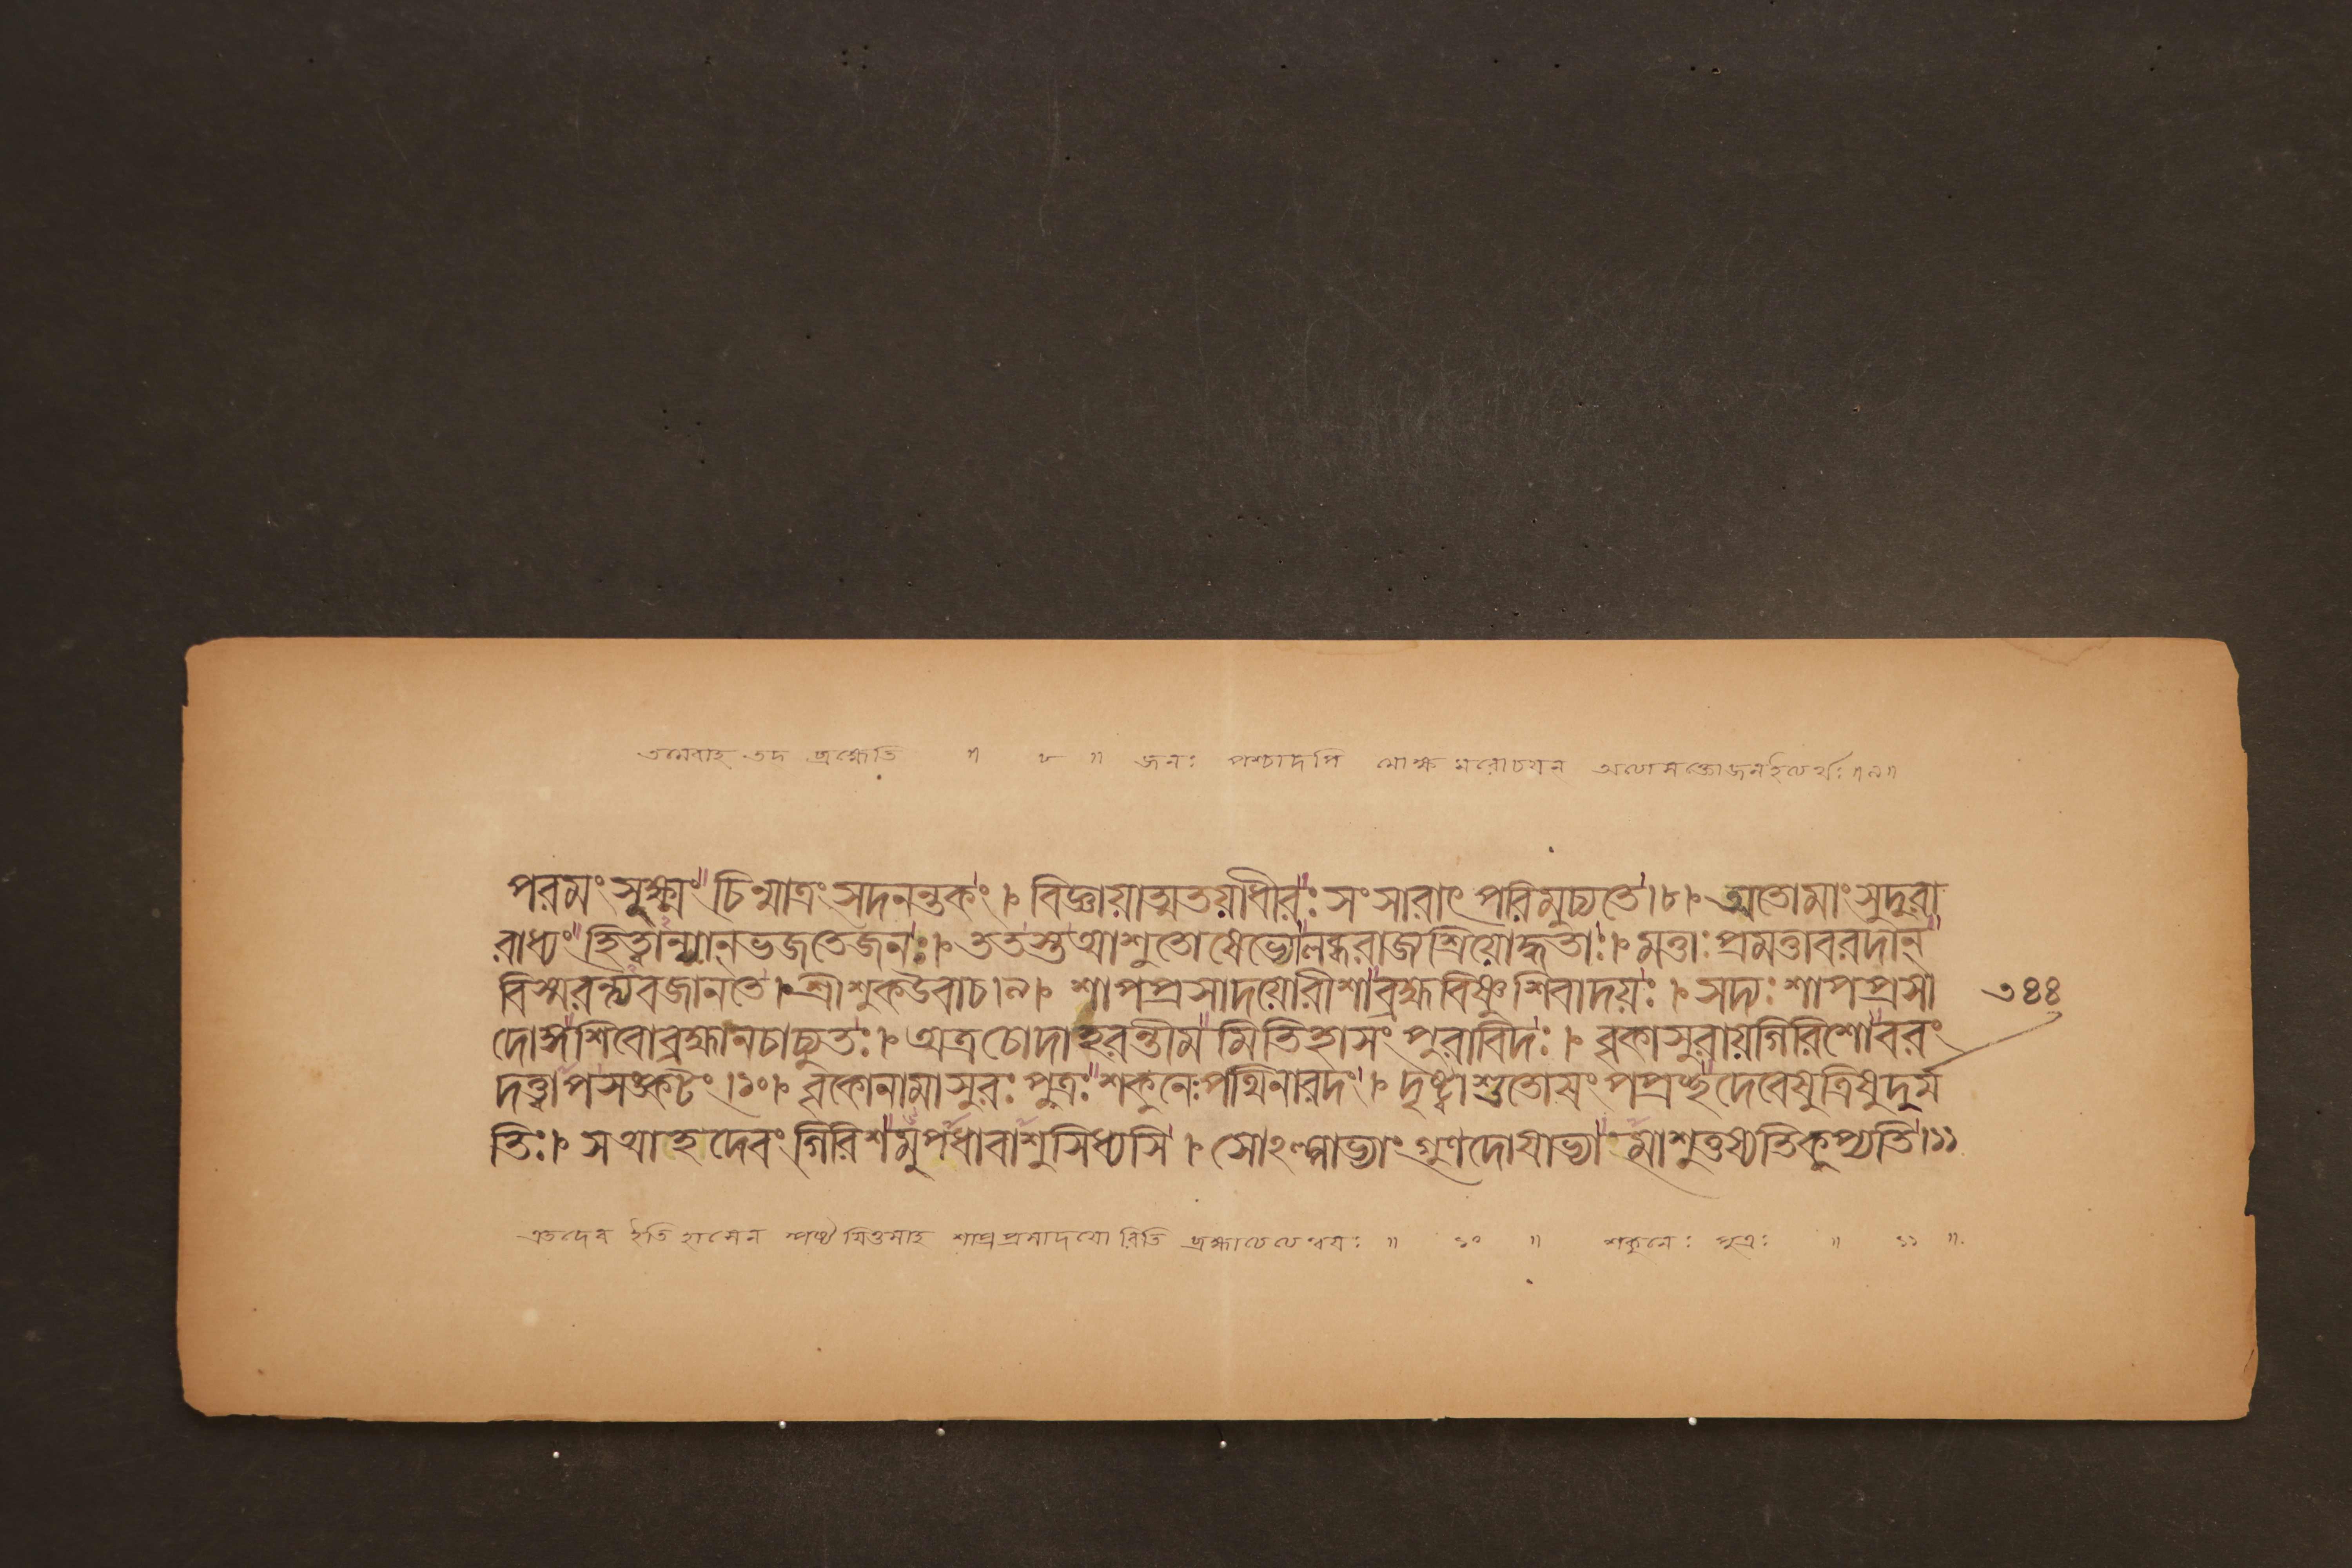 তমেবাহ তদ ব্রহ্মেতি ॥ ৮ ॥ জনঃ পশ্চাদপি মোক্ষ মরোচয়ন ॥৯॥
পরমং সূক্ষ্মং চিন্মাত্রং সদনন্তকং । বিজ্ঞায়াত্মতয়াধীরঃ সংসারাৎ পরিমুচ্যতে।৮। অতোমাং সুদুরা
রাধ্যং হিত্বান্যান্ভজতেজনঃ । ততস্তআশুতোষেভ্যোলব্ধরাজ্যশ্রিয়োদ্ধতাঃ । মত্তাঃ প্রমত্তাবরদান্
বিস্মরন্ত্যবজানতে । শ্রীশুকউবাচ।৯। শাপপ্রসাদয়োরীশাব্রহ্মবিষ্ণুশিবাদয়ঃ । সদ্যঃ শাপপ্রসা
৩৪৪
দোঙ্গশিবোব্রহ্মানচাচ্যুতঃ । অত্রচোদাহরন্তীম মিতিহাসং পুরাবিদঃ । বৃকাসুরায়গিরিশোবরং
দত্ত্বাপসঙ্কটং ।১০। বৃকোনামাসুরঃ পুত্রঃ শকুনেঃপথিনারদং । দৃষ্ট্বাশুতোষং পপ্রচ্ছদেবেষুত্রিষুদুর্ম
তিঃ । সআহদেবং গিরিশমুপধাবাশুসিধ্যসি । সোঽল্পাভ্যাং গুণদোষাভ্যা মাশুতুষ্যতিকুপ্যতি।১১
এতদেব ইতিহাসেন শাপপ্রসাদয়ো রিতি ॥ ১০ ॥ শকুনেঃ পুত্রঃ ॥ ১১ ॥